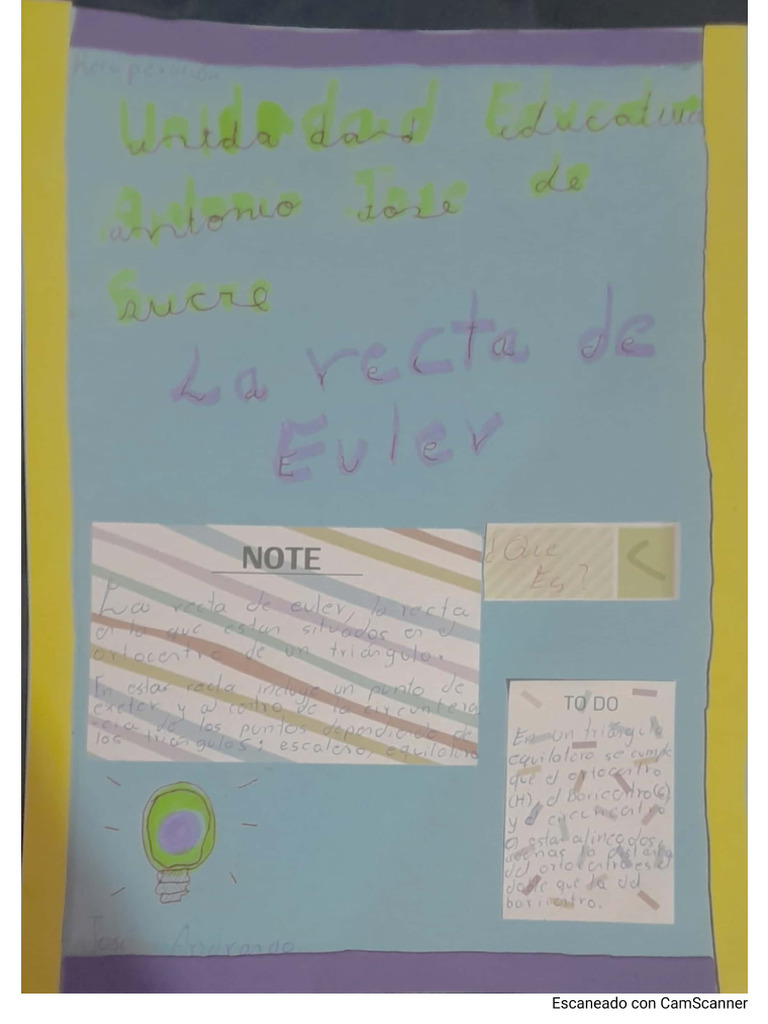 Recuperación
Unidadad Educativa
Antonio Jose de
Sucre
La recta de
Euler
NOTE
La recta de euler, la recta
en la que estan situados en el
ortocentro de un triángulo.
En estar recta incluye un punto de
exeter y al cetro de la circunfere
ncia de los puntos dependiendo de
los triángulos; escaleno, equilatero
¿Que
Es?
TO DO
En un triángulo
equilatero se cumple
que el ortocentro
(H), el baricentro(G)
y circuncentro
O estar alineados,
ademas la distancia
del ortocentro es el
doble que la del
baricentro.
Jose
Escaneado con CamScanner